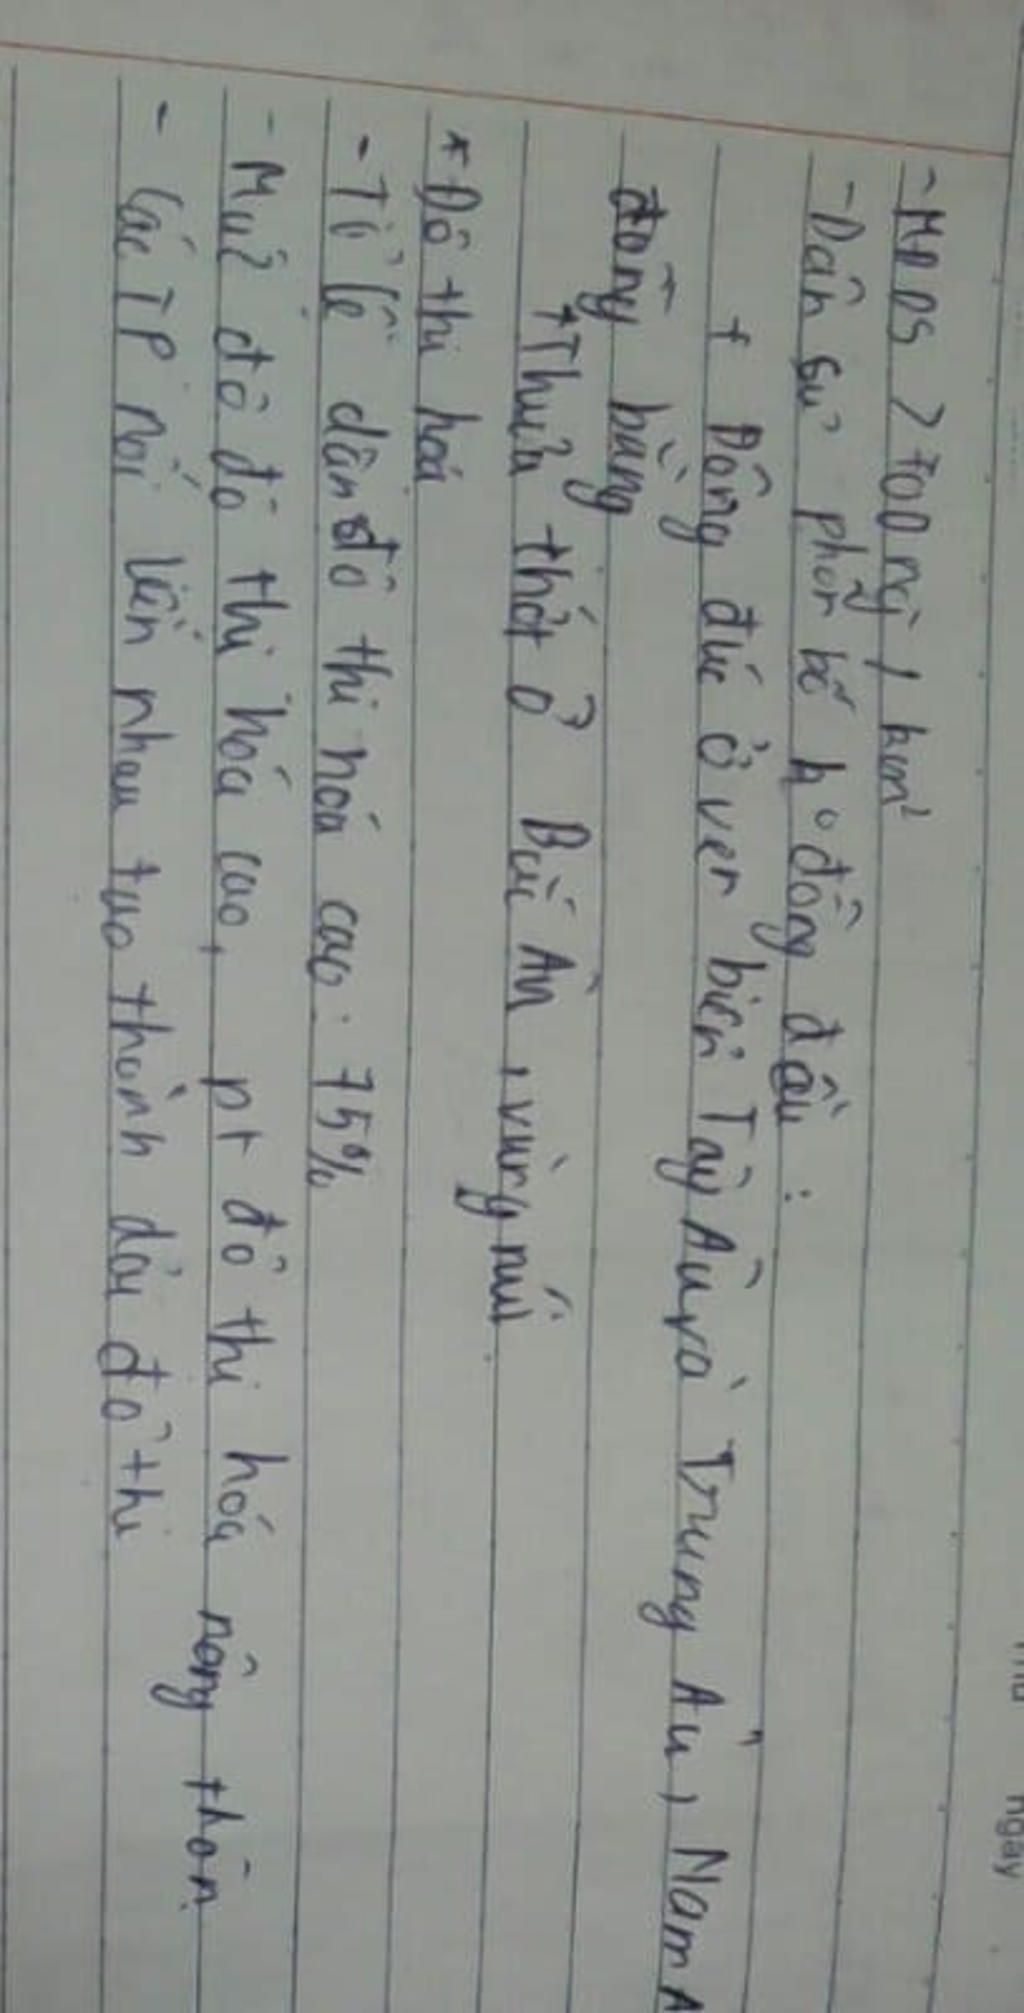 ngày
- MĐDS > 700 ng / km²
- Dân sư phân bố hº đồng đều :
+ Đông đúc ở ven biển Tây Âu và Trung Âu, Nam A
đồng bằng
+ Thưa thớt ở Bắc Âu, vùng núi
* Đô thị hoá
- Tỉ lệ dân đô thị hoá cao: 75%
- Mức độ đô thị hóa cao, pt đô thị hóa nông thôn
- Các TP nối liền nhau tạo thành dải đô thị